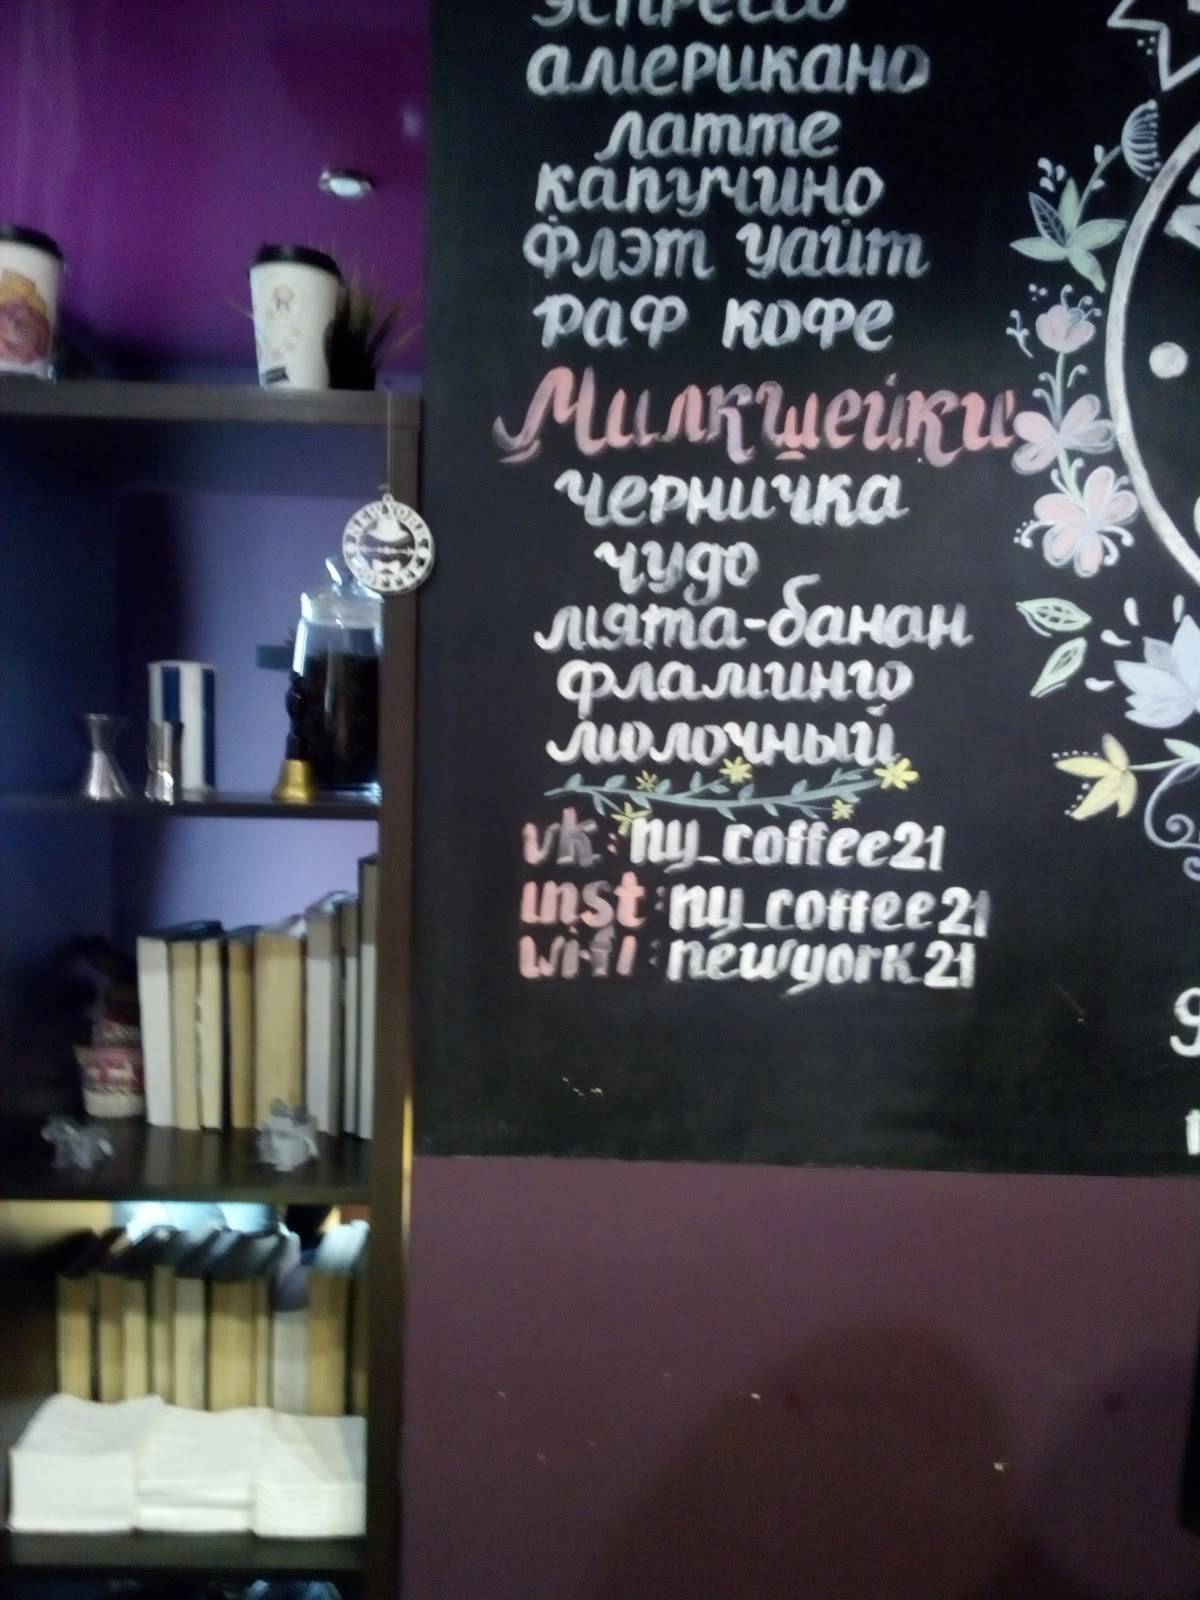 эспрессо
американо
латте
капучино
флэт уайт
раф кофе
Милкшейки
черничка
чудо
мята-банан
фламинго
молочный
vk: ny_coffee21
inst: ny_coffee21
wi-fi: newyork21
NEW YORK
COFFEE